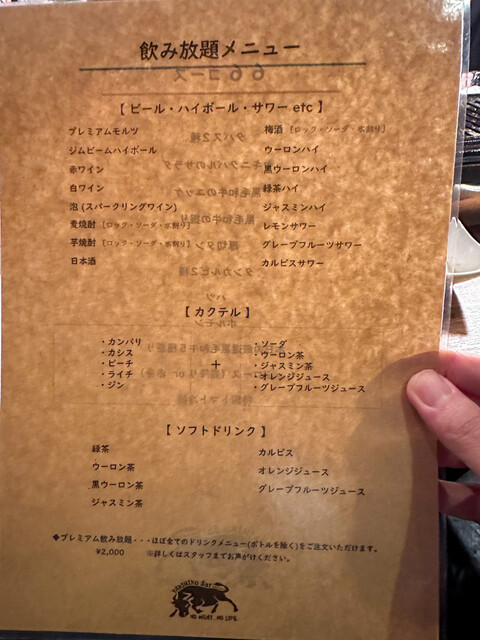 飲み放題メニュー
【 ビール・ハイボール・サワー etc 】
プレミアムモルツ
ジムビームハイボール
赤ワイン
白ワイン
泡 (スパークリングワイン)
麦焼酎 [ロック・ソーダ・水割り]
芋焼酎 [ロック・ソーダ・水割り]
日本酒
梅酒 [ロック・ソーダ・水割り]
ウーロンハイ
黒ウーロンハイ
緑茶ハイ
ジャスミンハイ
レモンサワー
グレープフルーツサワー
カルピスサワー
【 カクテル 】
・カンパリ
・カシス
・ピーチ
・ライチ
・ジン
+
・ソーダ
・ウーロン茶
・ジャスミン茶
・オレンジジュース
・グレープフルーツジュース
【 ソフトドリンク 】
緑茶
ウーロン茶
黒ウーロン茶
ジャスミン茶
カルピス
オレンジジュース
グレープフルーツジュース
◆プレミアム飲み放題・・・ほぼ全てのドリンクメニュー(ボトルを除く)をご注文いただけます。
¥2,000 ※詳しくはスタッフまでお声がけください。
NO MEAT, NO LIFE.